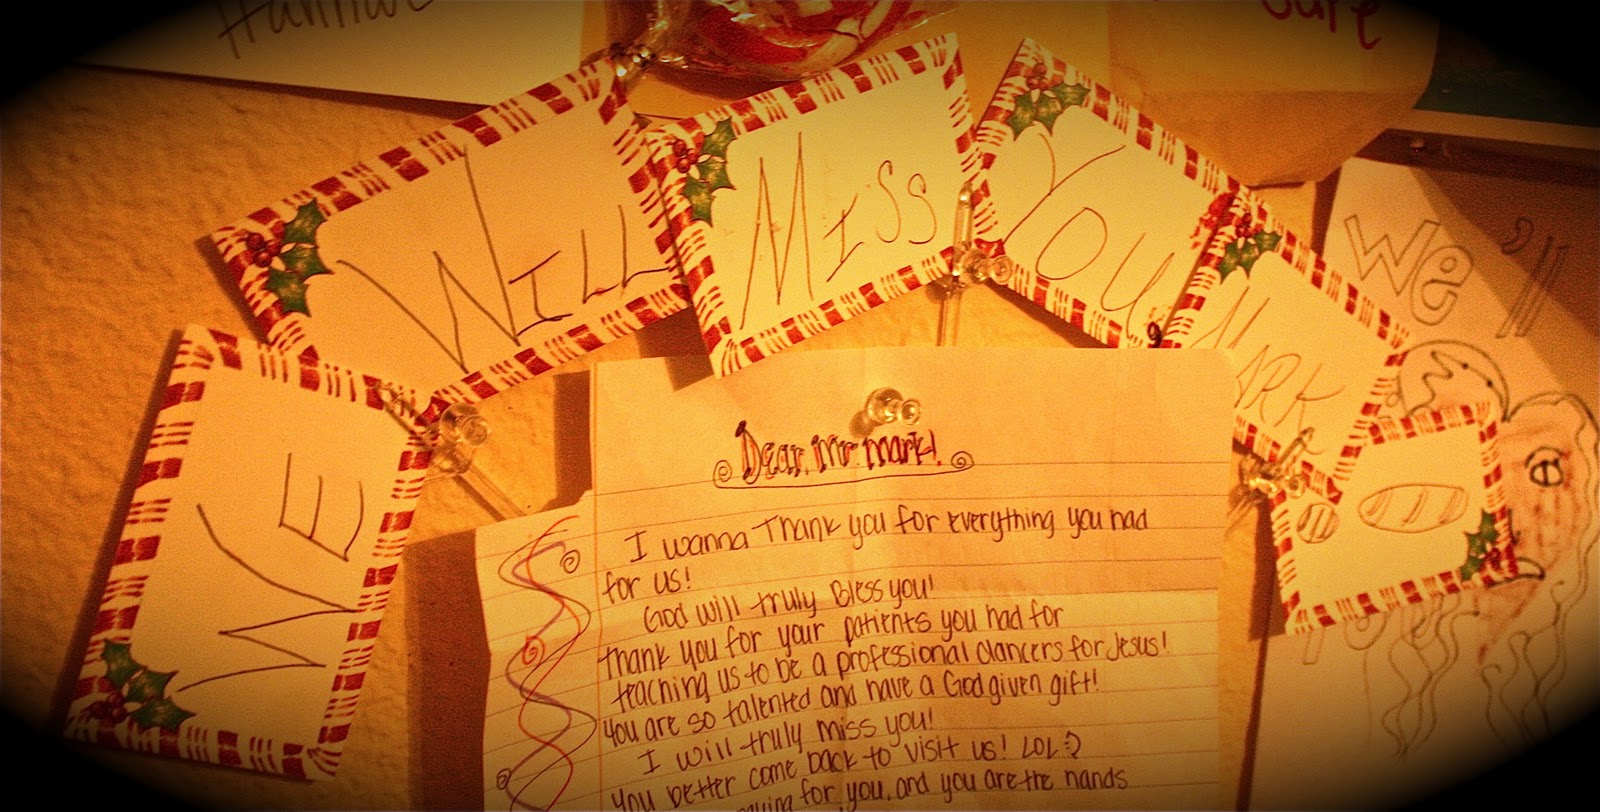 WE
WILL
MISS
YOU
MARK
We'll
Dear, Mr. Mark!
I wanna Thank you for everything you had
for us!
God will truly Bless you!
Thank you for your patients you had for
teaching us to be a professional dancers for Jesus!
You are so talented and have a God given gift!
I will truly miss you!
you better come back to visit us! LOL :)
for you, and you are the hands